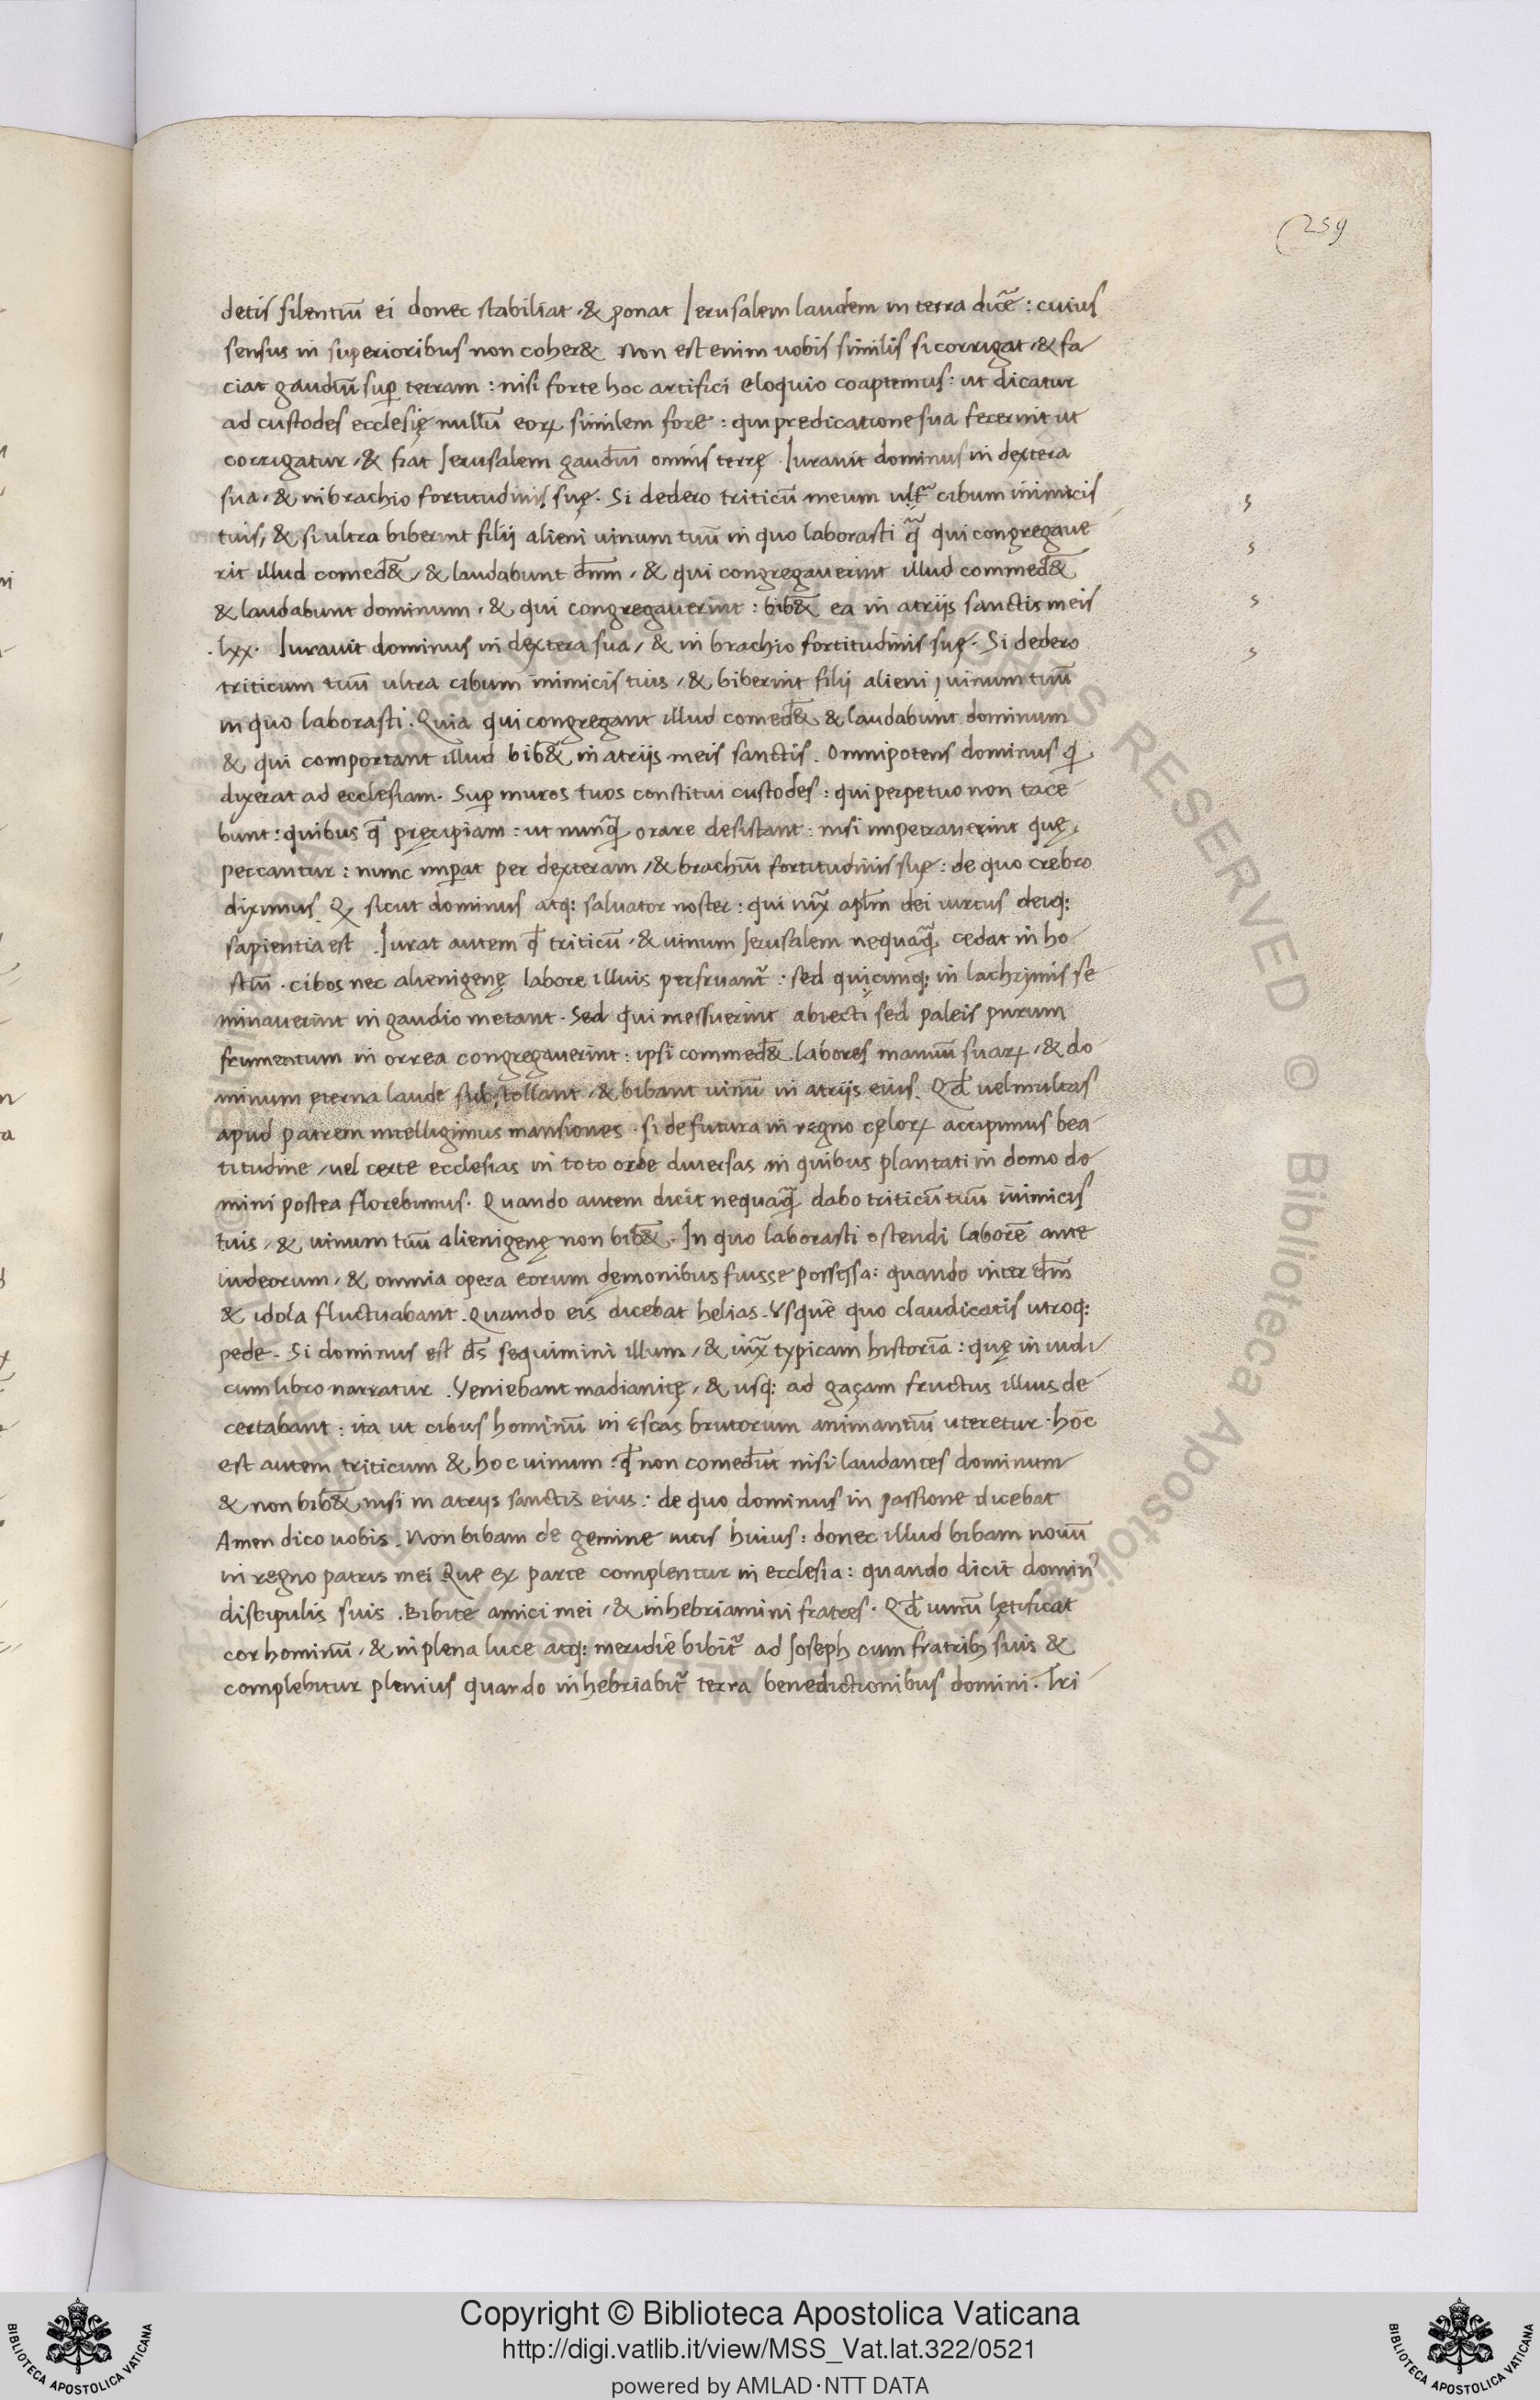 259
detis silentiū ei donec stabiliat, & ponat Jerusalem laudem in terra dicē̄: cuius
sensus in superioribus non coher& Non est enim uobis similis si corrigat, & fa-
ciat gaudiū suꝑ terram: nisi forte hoc artifici eloquio coaptemus: ut dicatur
ad custodes ecclesię nullū eoꝝ similem fore: qui predicatione sua fecerint ut
corrigatur, & fiat Jerusalem gaudiū omnis terrę. Iurauit dominus in dextera
sua, & in brachio fortitudinis suę. Si dedero triticū meum ult̄ cibum inimicis
tuis, & si ultra biberint filij alieni uinum tuū in quo laborasti q̄ qui congregaue
rit illud comed̄&, & laudabunt dn̄m, & qui congregauerint illud commed̄&
& laudabunt dominum, & qui congregauerint: bib̄& ea in atrijs sanctis meis
.lxx. Iurauit dominus in dextera sua, & in brachio fortitudinis suę. Si dedero
triticum tuū ultra cibum inimicis tuis, & biberint filij alieni, uinum tuū
in quo laborasti. Quia qui congregant illud comed̄& & laudabunt dominum
& qui comportant illud bib̄& in atrijs meis sanctis. Omnipotens dominus q
dixerat ad ecclesiam. Suꝑ muros tuos constitui custodes: qui perpetuo non tace
bunt: quibus q̄ pręcipiam: ut nunq̄ orare desistant: nisi impetrauerint quę
peccantur: nunc imꝑat per dexteram, & brachiū fortitudinis suę: de quo crebro
diximus Q sicut dominus atq: saluator noster: qui iux̄ apl̄m dei uirtus deiq:
sapientia est. Iurat autem q̄ triticū, & uinum Jerusalem nequaq̄ cedat in ho-
stiū. cibos nec alienigenę labore illius perfruant᷑: sed quicunq: in lachrimis se
minauerint in gaudio metant. Sed qui messuerint abiecti sed paleis purum
frumentum in orrea congregauerint: ipsi commed̄& labores manuū suaꝝ, & do-
minum ęterna laude sub,tollant, & bibant uinū in atrijs eius. Qd̄ uel multas
apud patrem intelligimus mansiones. si de futura in regno cęloꝝ accipimus bea-
titudine, uel certe ecclesias in toto orbe diuersas in quibus plantati in domo do
mini postea florebimus. Quando autem dicit nequaq̄ dabo triticū tuū inimicis
tuis, & uinum tuū alienigenę non bib̄&. In quo laborasti ostendi laborē ante
iudeorum, & omnia opera eorum dęmonibus fuisse possessa: quando inter d̄m
& idola fluctuabant. Quando eis dicebat helias. Vsquē quo claudicatis utroq:
pede. Si dominus est ds̄ sequimini illum, & iux̄ typicam historiā: quę in iudi-
cum libro narratur. Veniebant madianitę, & usq: ad gaçam fructus illius de-
certabant: ita ut cibus hominū in escas brutorum animantiū uteretur. hoc
est autem triticum & hoc uinum: q̄ non comed̄ut nisi laudantes dominum
& non bib̄& nisi in atrijs sanctis eius: de quo dominus in passione dicebat
Amen dico uobis. Non bibam de gemine uitis huius: donec illud bibam nouū
in regno patris mei Que ex parte complentur in ecclesia: quando dicit domin᾽
discipulis suis. Bibite amici mei, & inhebriamini fratres. Qd̄ uinū lętificat
cor hominū, & in plena luce atq: meridie bibit᷑ ad Joseph cum fratribꝫ suis &
complebitur plenius quando inhebriabit᷑ terra benedictionibus domini. Tri-
Copyright © Biblioteca Apostolica Vaticana
http://digi.vatlib.it/view/MSS_Vat.lat.322/0521
powered by AMLAD·NTT DATA
BIBLIOTECA APOSTOLICA VATICANA
BIBLIOTECA APOSTOLICA VATICANA